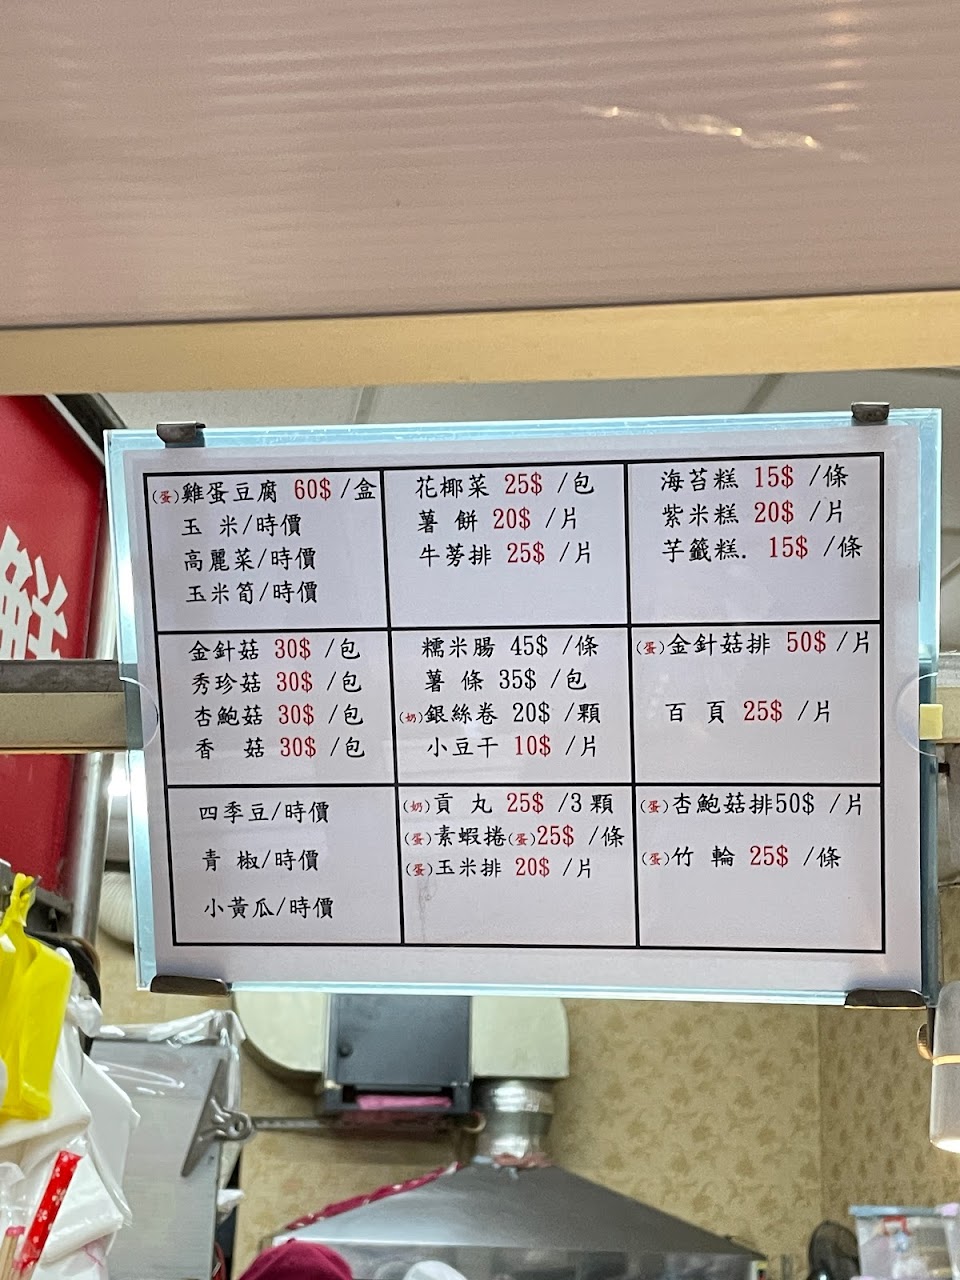 (蛋)雞蛋豆腐 60$ /盒
玉 米/時價
高麗菜/時價
玉米筍/時價
花椰菜 25$ /包
薯 餅 20$ /片
牛蒡排 25$ /片
海苔糕 15$ /條
紫米糕 20$ /片
芋籤糕. 15$ /條
金針菇 30$ /包
秀珍菇 30$ /包
杏鮑菇 30$ /包
香 菇 30$ /包
糯米腸 45$ /條
薯 條 35$ /包
(奶)銀絲卷 20$ /顆
小豆干 10$ /片
(蛋)金針菇排 50$ /片
百 頁 25$ /片
四季豆/時價
青 椒/時價
小黃瓜/時價
(奶)貢 丸 25$ /3顆
(蛋)素蝦捲(蛋)25$ /條
(蛋)玉米排 20$ /片
(蛋)杏鮑菇排50$ /片
(蛋)竹 輪 25$ /條